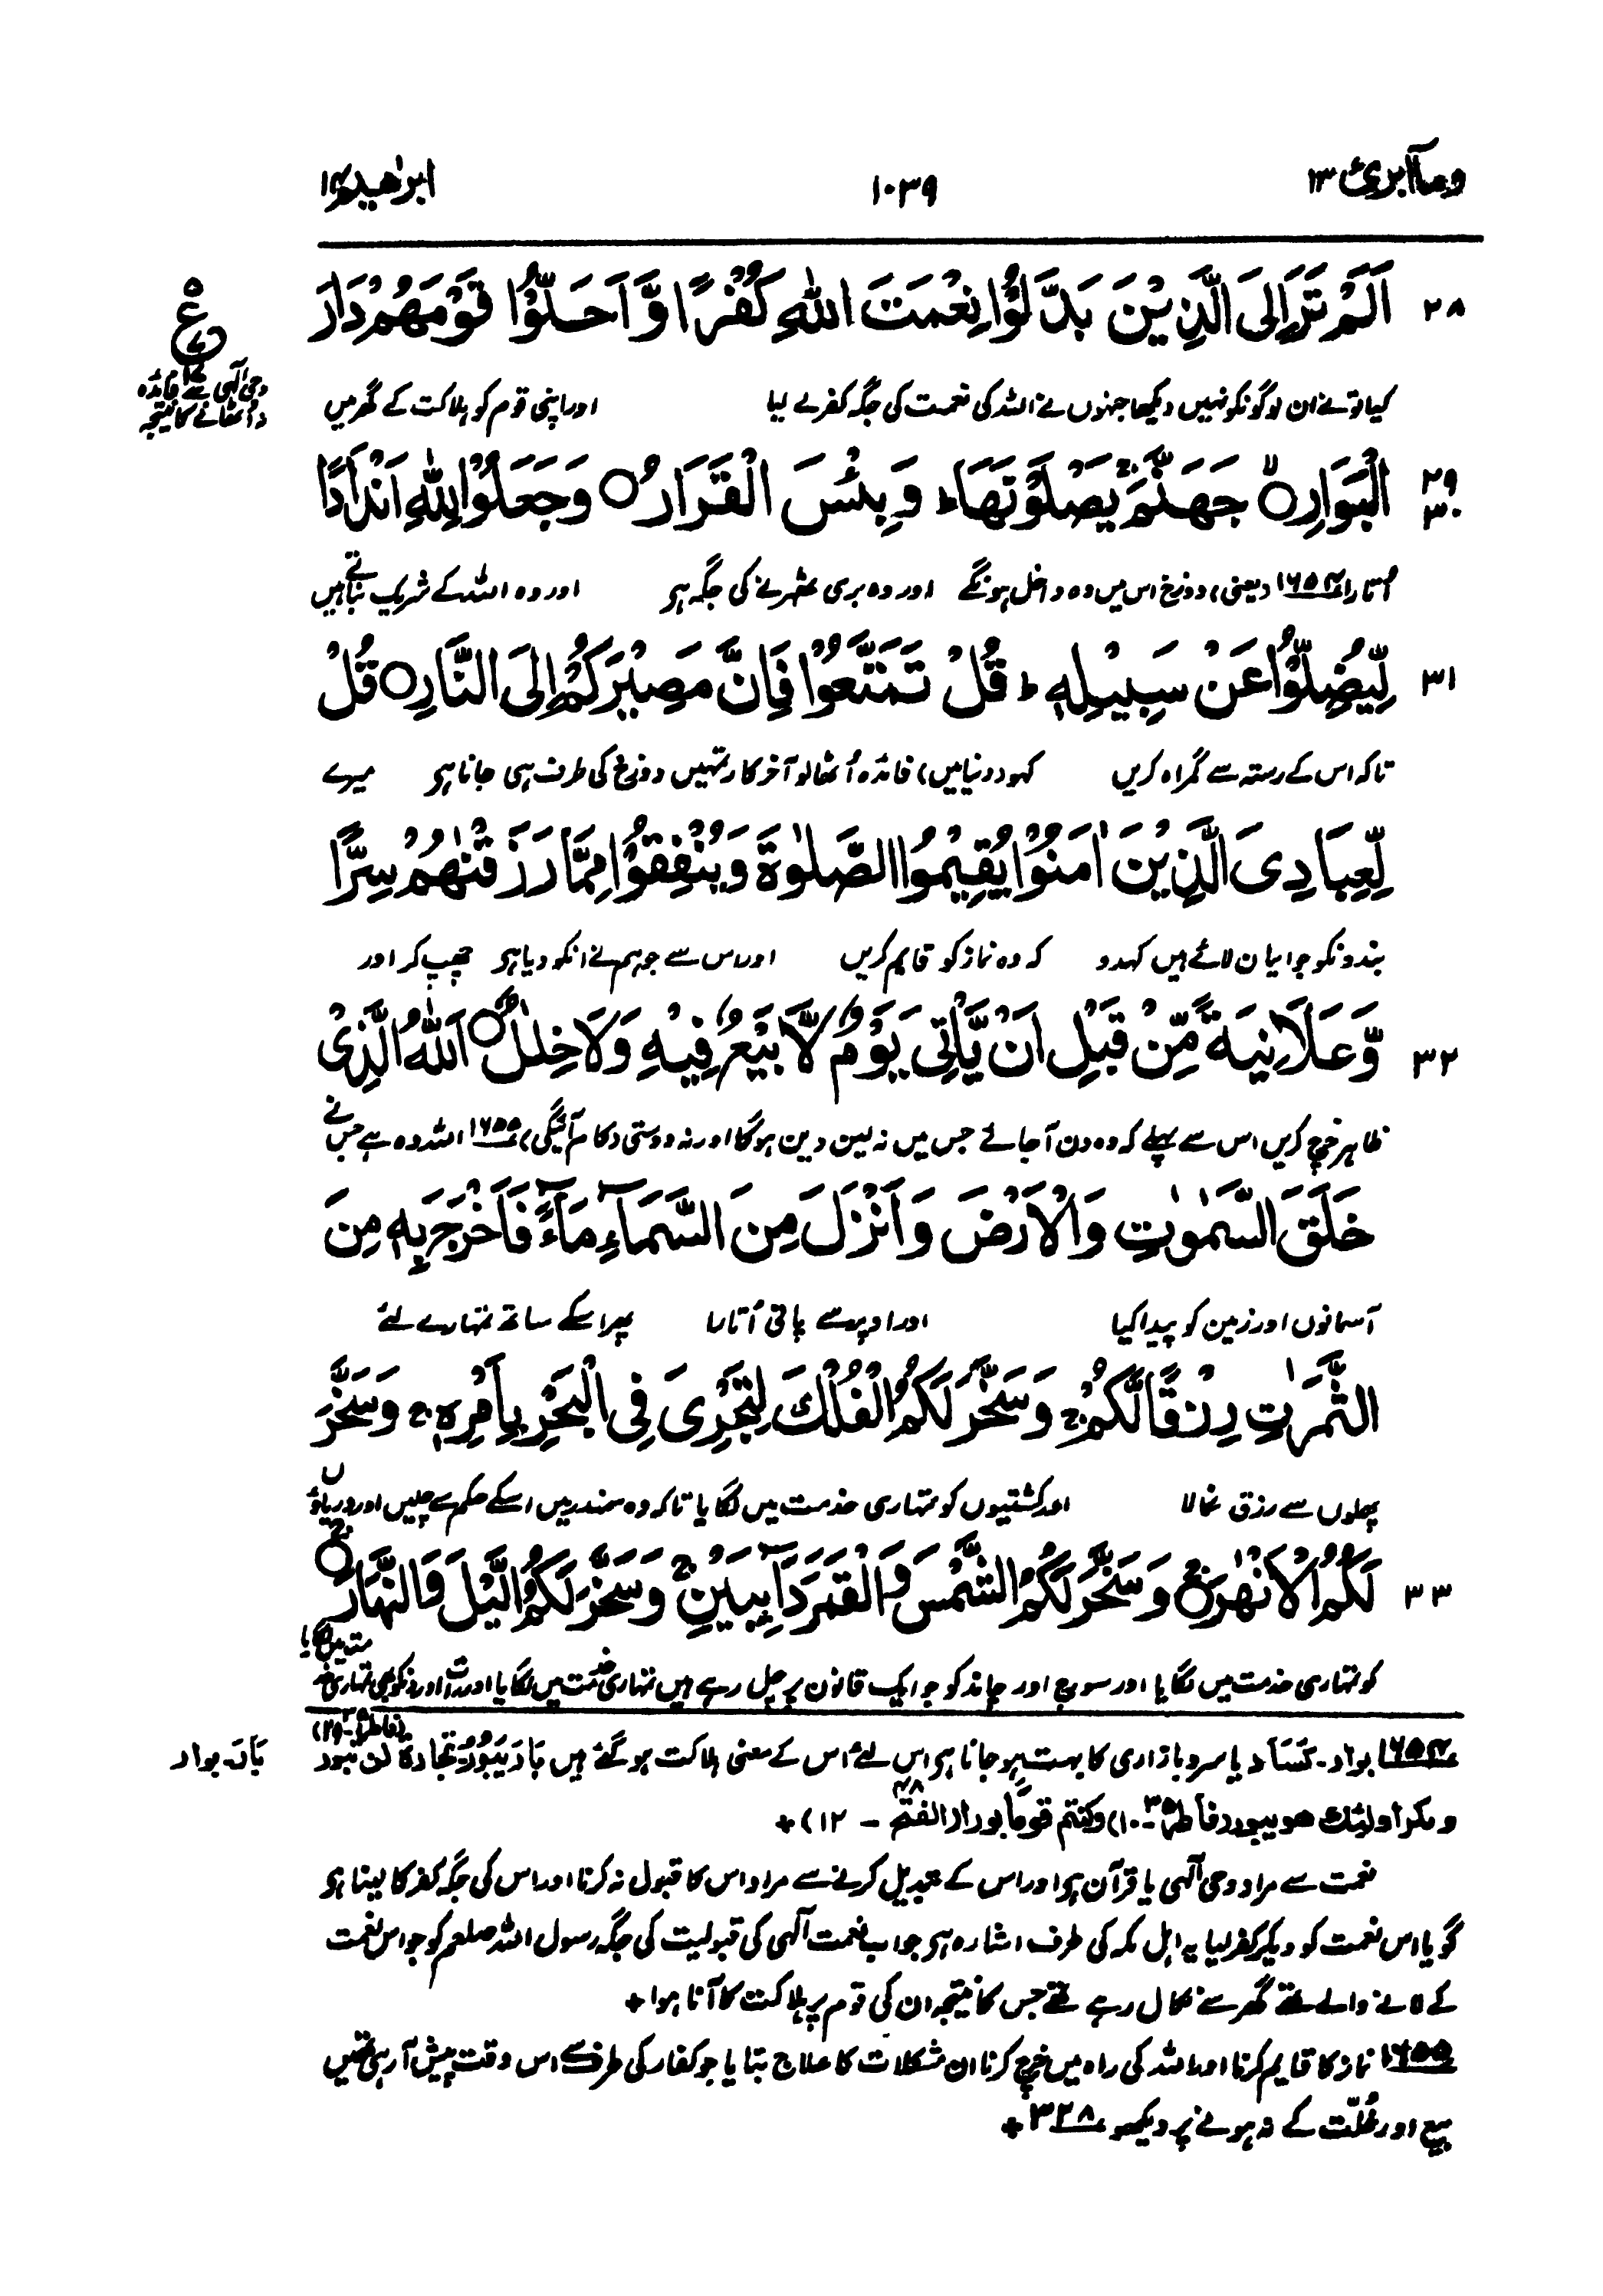 وماۤابرئ ۱۳
۱۰۳۹
ابرٰهیم ۱۴
۲۸ اَلَمْ تَرَ اِلَى الَّذِيْنَ بَدَّلُوْا نِعْمَتَ اللّٰهِ كُفْرًا وَّاَحَلُّوْا قَوْمَهُمْ دَارَ
ع
۵
۱۷
وحی الٰہی سے فائدہ
نہ اٹھانے کا نتیجہ
کیا تونے ان لوگونکو نہیں دیکھا جنہوں نے اللہ کی نعمت کی جگہ کفر لے لیا اور اپنی قوم کو ہلاکت کے گھر میں
۲۹ ۳۰ الْبَوَارِ ۙ جَهَنَّمَ ۚ يَصْلَوْنَهَا ؕ وَبِئْسَ الْقَرَارُ ○ وَجَعَلُوْا لِلّٰهِ اَنْدَادًا
اُتارا ۱۶۵۴ (یعنی) دوزخ اس میں وہ داخل ہونگے اور وہ بری ٹھہرنے کی جگہ ہی اور وہ اللہ کے شریک بناتے ہیں
۳۱ لِّيُضِلُّوْا عَنْ سَبِيْلِهٖ ؕ قُلْ تَمَتَّعُوْا فَاِنَّ مَصِيْرَكُمْ اِلَى النَّارِ ○ قُلْ
تاکہ اس کے رستہ سے گمراہ کریں کہو (دنیا میں) فائدہ اُٹھا لو آخر کار تمہیں دوزخ کی طرف ہی جانا ہی میرے
لِّعِبَادِىَ الَّذِيْنَ اٰمَنُوْا يُقِيْمُوا الصَّلٰوةَ وَيُنْفِقُوْا مِمَّا رَزَقْنٰهُمْ سِرًّا
بندونکو جو ایمان لائے ہیں کہدو کہ وہ نماز کو قایم کریں اور اس سے جو ہم نے انکو دیا ہی چھپ کر اور
۳۲ وَّعَلَانِيَةً مِّنْ قَبْلِ اَنْ يَّاْتِىَ يَوْمٌ لَّا بَيْعٌ فِيْهِ وَلَا خِلٰلٌ ○ اَللّٰهُ الَّذِىْ
ظاہر خرچ کریں اس سے پہلے کہ وہ دن آجائے جس میں نہ لین دین ہوگا اور نہ دوستی (کام آئیگی) ۱۶۵۵ اللہ وہ ہے جس نے
خَلَقَ السَّمٰوٰتِ وَالْاَرْضَ وَاَنْزَلَ مِنَ السَّمَآءِ مَآءً فَاَخْرَجَ بِهٖ مِنَ
آسمانوں اور زمین کو پیدا کیا اور اوپر سے پانی اُتارا پھر اسکے ساتھ تمہارے لئے
الثَّمَرٰتِ رِزْقًا لَّكُمْ ۚ وَسَخَّرَ لَكُمُ الْفُلْكَ لِتَجْرِىَ فِى الْبَحْرِ بِاَمْرِهٖ ۚ وَسَخَّرَ
پھلوں سے رزق نکالا اور کشتیوں کو تمہاری خدمت میں لگایا تاکہ وہ سمندر میں اسکے حکم سے چلیں اور دریاؤں
۳۳ لَكُمُ الْاَنْهٰرَ ۚ وَسَخَّرَ لَكُمُ الشَّمْسَ وَالْقَمَرَ دَآىِٕبَيْنِ ۚ وَسَخَّرَ لَكُمُ الَّيْلَ وَالنَّهَارَ ۚ
کو تمہاری خدمت میں لگایا اور سورج اور چاند کو جو ایک قانون پر چل رہے ہیں تمہاری خدمت میں لگایا اور رات اور دنکو بھی تمہاری خدمت میں لگایا
۱۶۵۴ بوار۔ کَسَاد یا سرد بازاری کا بہت ہو جانا ہی اس لئے اس کے معنی ہلاکت ہو گئے ہیں بَارَ یَبُوْرُ۔ تجارة لن تبور (فاطر ۳۵۔۲۹)
بَارَ۔ بوار
ومکر اولٰئك هو یبور (فاطر ۳۵۔۱۰) وکنتم قومًا بورا (الفتح ۴۸ ۔ ۱۲) +
نعمت سے مراد وحی الٰہی یا قرآن ہی اور اس کے تبدیل کرنے سے مراد اس کا قبول نہ کرنا اور اس کی جگہ کفر کا لینا ہی
گویا اس نعمت کو دیکر کفر لیا یہ اہل مکہ کی طرف اشارہ ہی جو اب نعمت الٰہی کی قبولیت کی جگہ رسول اللہ صلعم کو جو اس نعمت
کے لانے والے تھے گھر سے نکال رہے تھے جس کا نتیجہ ان کی قوم پر ہلاکت کا آنا ہوا +
۱۶۵۵ نماز کا قایم کرنا اور اللہ کی راہ میں خرچ کرنا ان مشکلات کا علاج بتایا جو کفار کی طرف سے اس وقت پیش آرہی تھیں
بیع اور خُلّت کے نہ ہونے پر دیکھو ۳۲۸ +